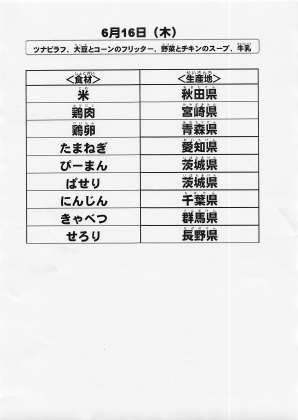 6月16日（木）
ツナピラフ、大豆とコーンのフリッター、野菜とチキンのスープ、牛乳
＜食材＞ ＜生産地＞
米 秋田県
鶏肉 宮崎県
鶏卵 青森県
たまねぎ 愛知県
ぴーまん 茨城県
ぱせり 茨城県
にんじん 千葉県
きゃべつ 群馬県
せろり 長野県